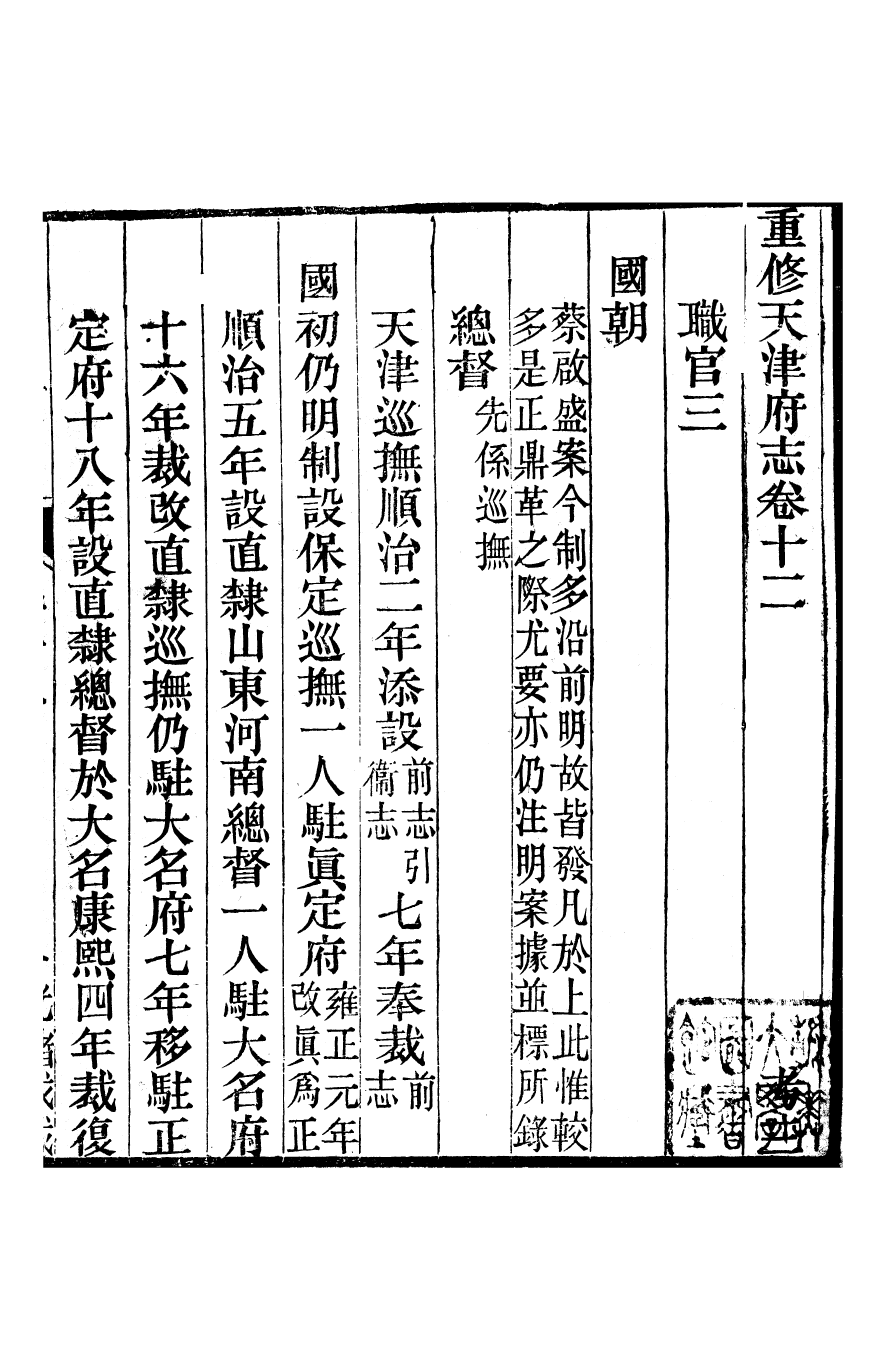 重修天津府志卷十二
職官三
國朝
蔡啟盛案今制多沿前明故皆發凡於上此惟較
多是正鼎革之際尤要亦仍注明案據並標所錄
總督先係巡撫
天津巡撫順治二年添設前志引衞志七年奉裁前志
國初仍明制設保定巡撫一人駐眞定府雍正元年改眞爲正
順治五年設直隸山東河南總督一人駐大名府
十六年裁改直隸巡撫仍駐大名府七年移駐正
定府十八年設直隸總督於大名康熙四年裁復